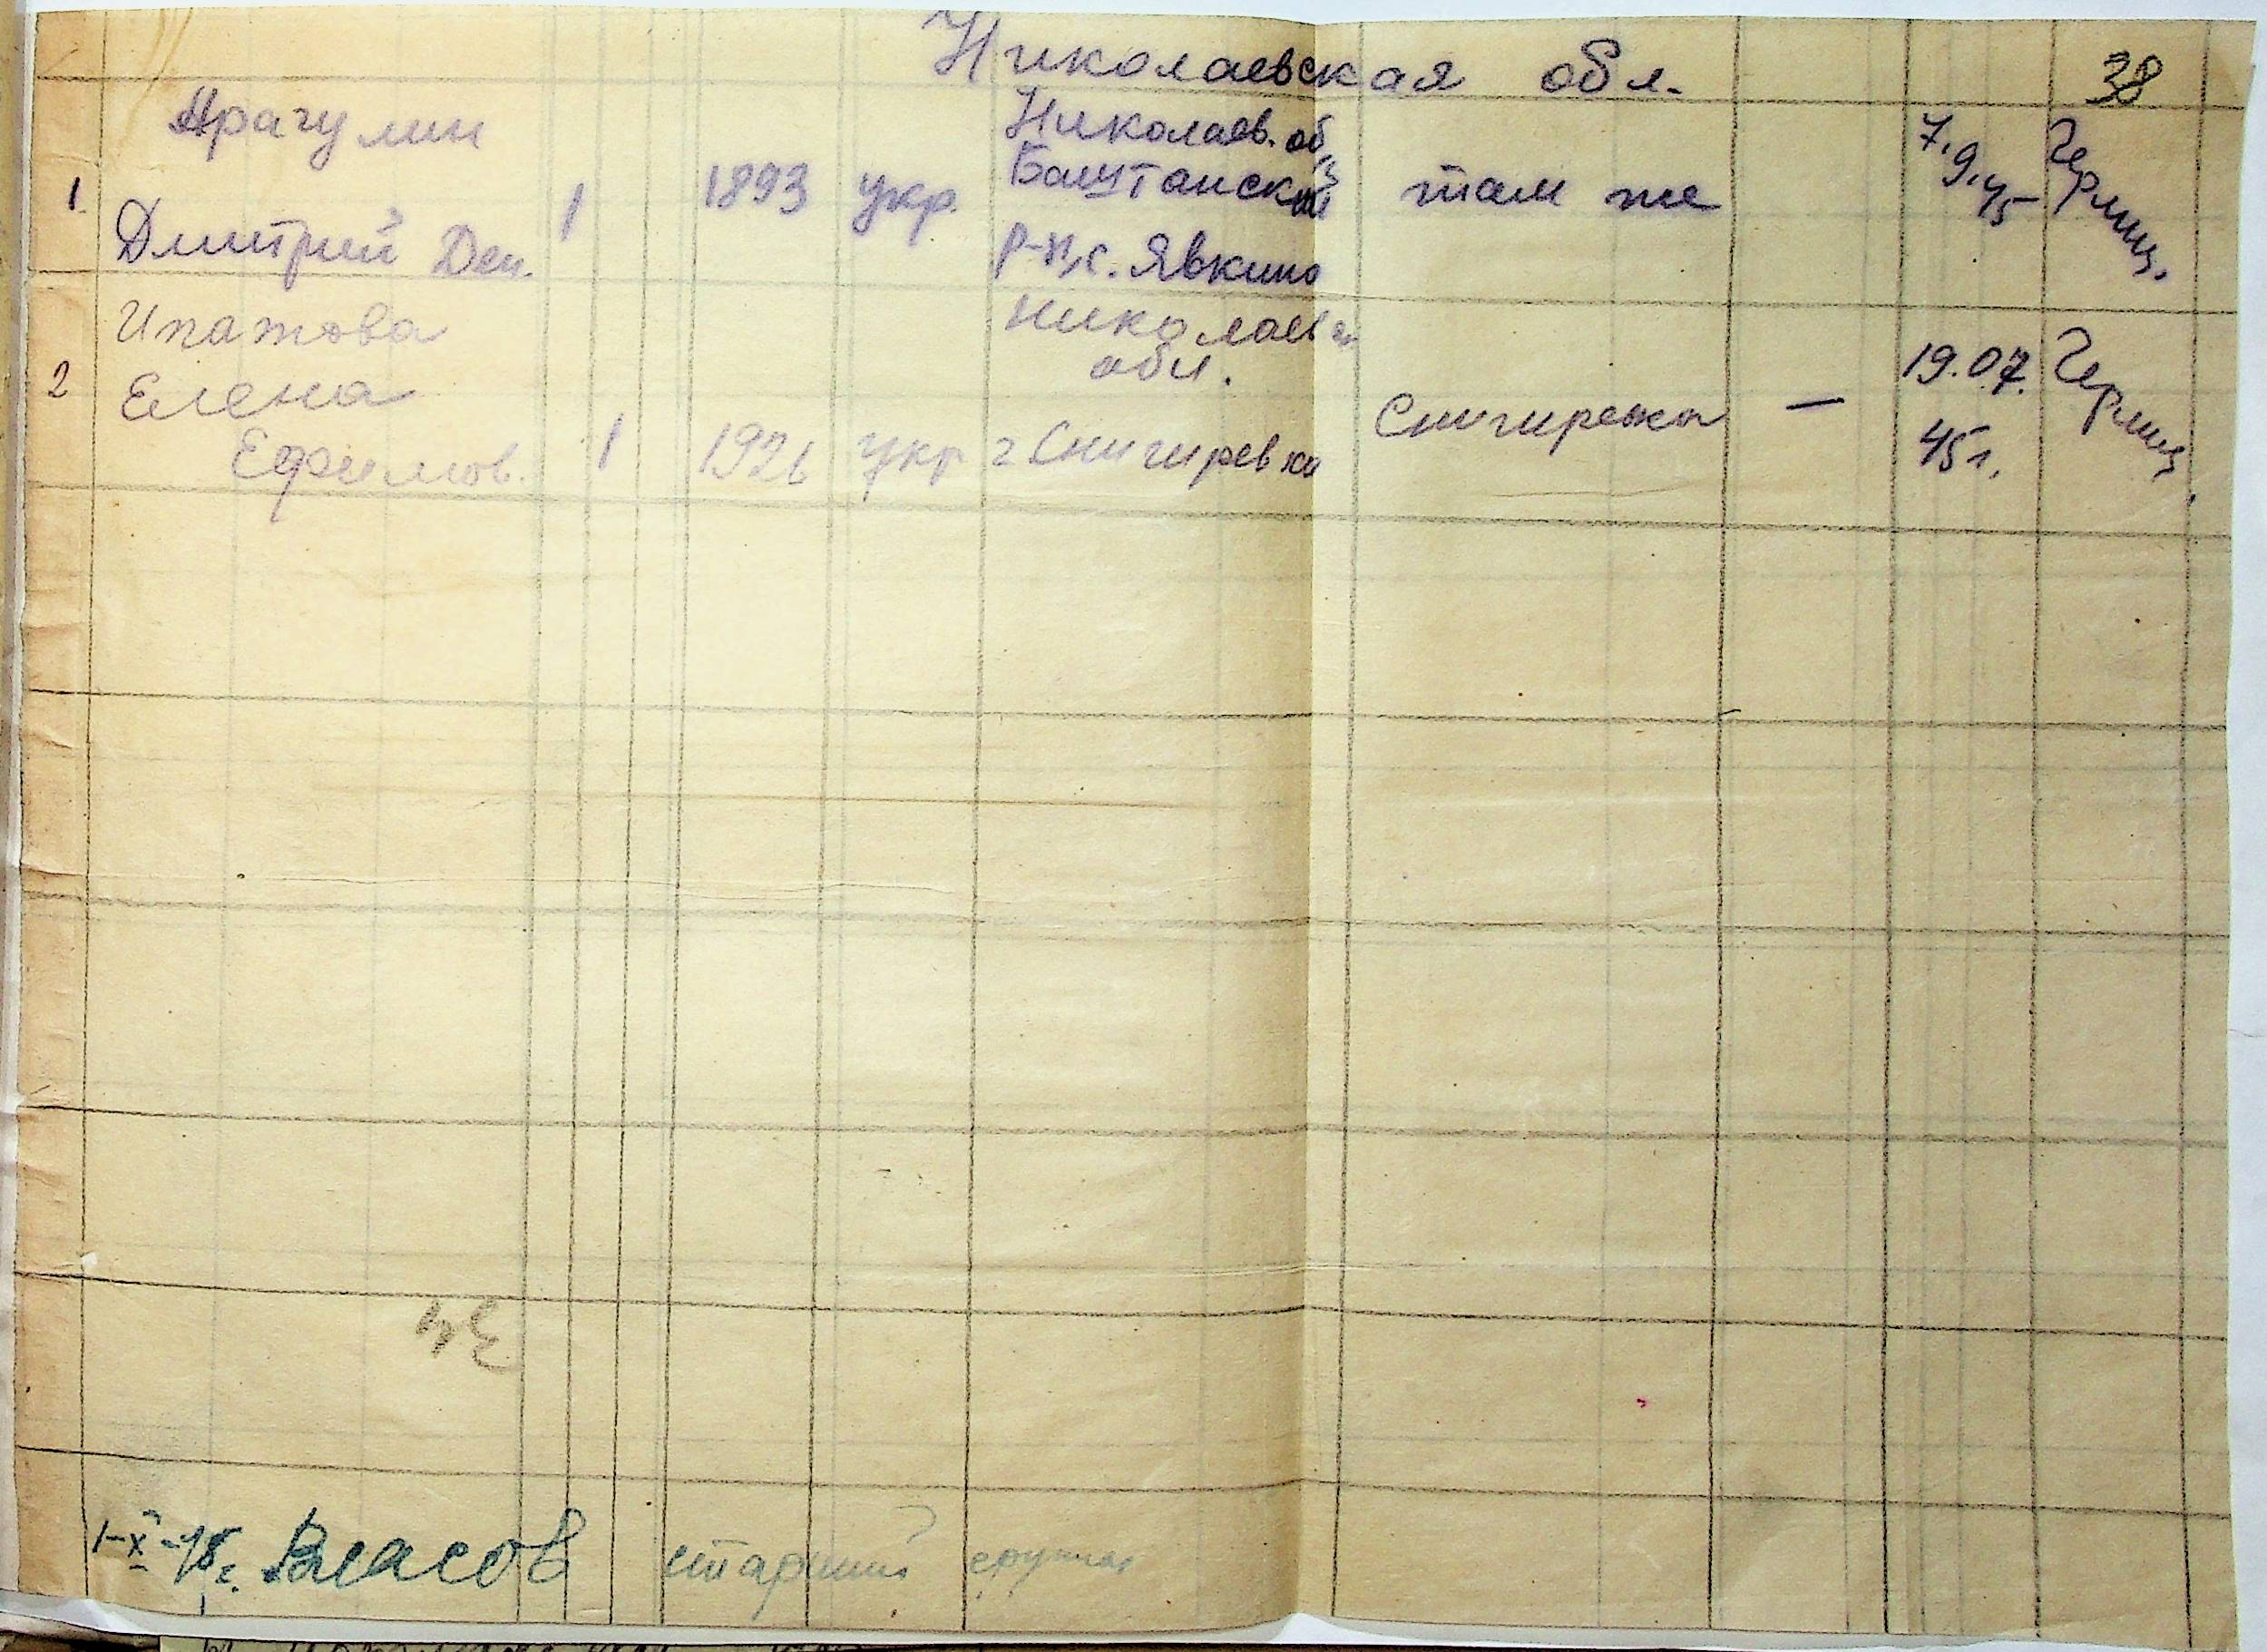 Николаевская обл.
38
1. Драгулин
Дмитрий Ден. 1 1893 укр.
Николаев. об.
Баштанский
р-н, с. Явкино
там же
7.9.45
Герман.
2 Ипатова
Елена
Ефимов. 1 1926 укр
Николаев
обл.
г Снигиревка
Снигиревка —
19.07.
45 г.
Герман.
1-X-45 г. Власов старший группы